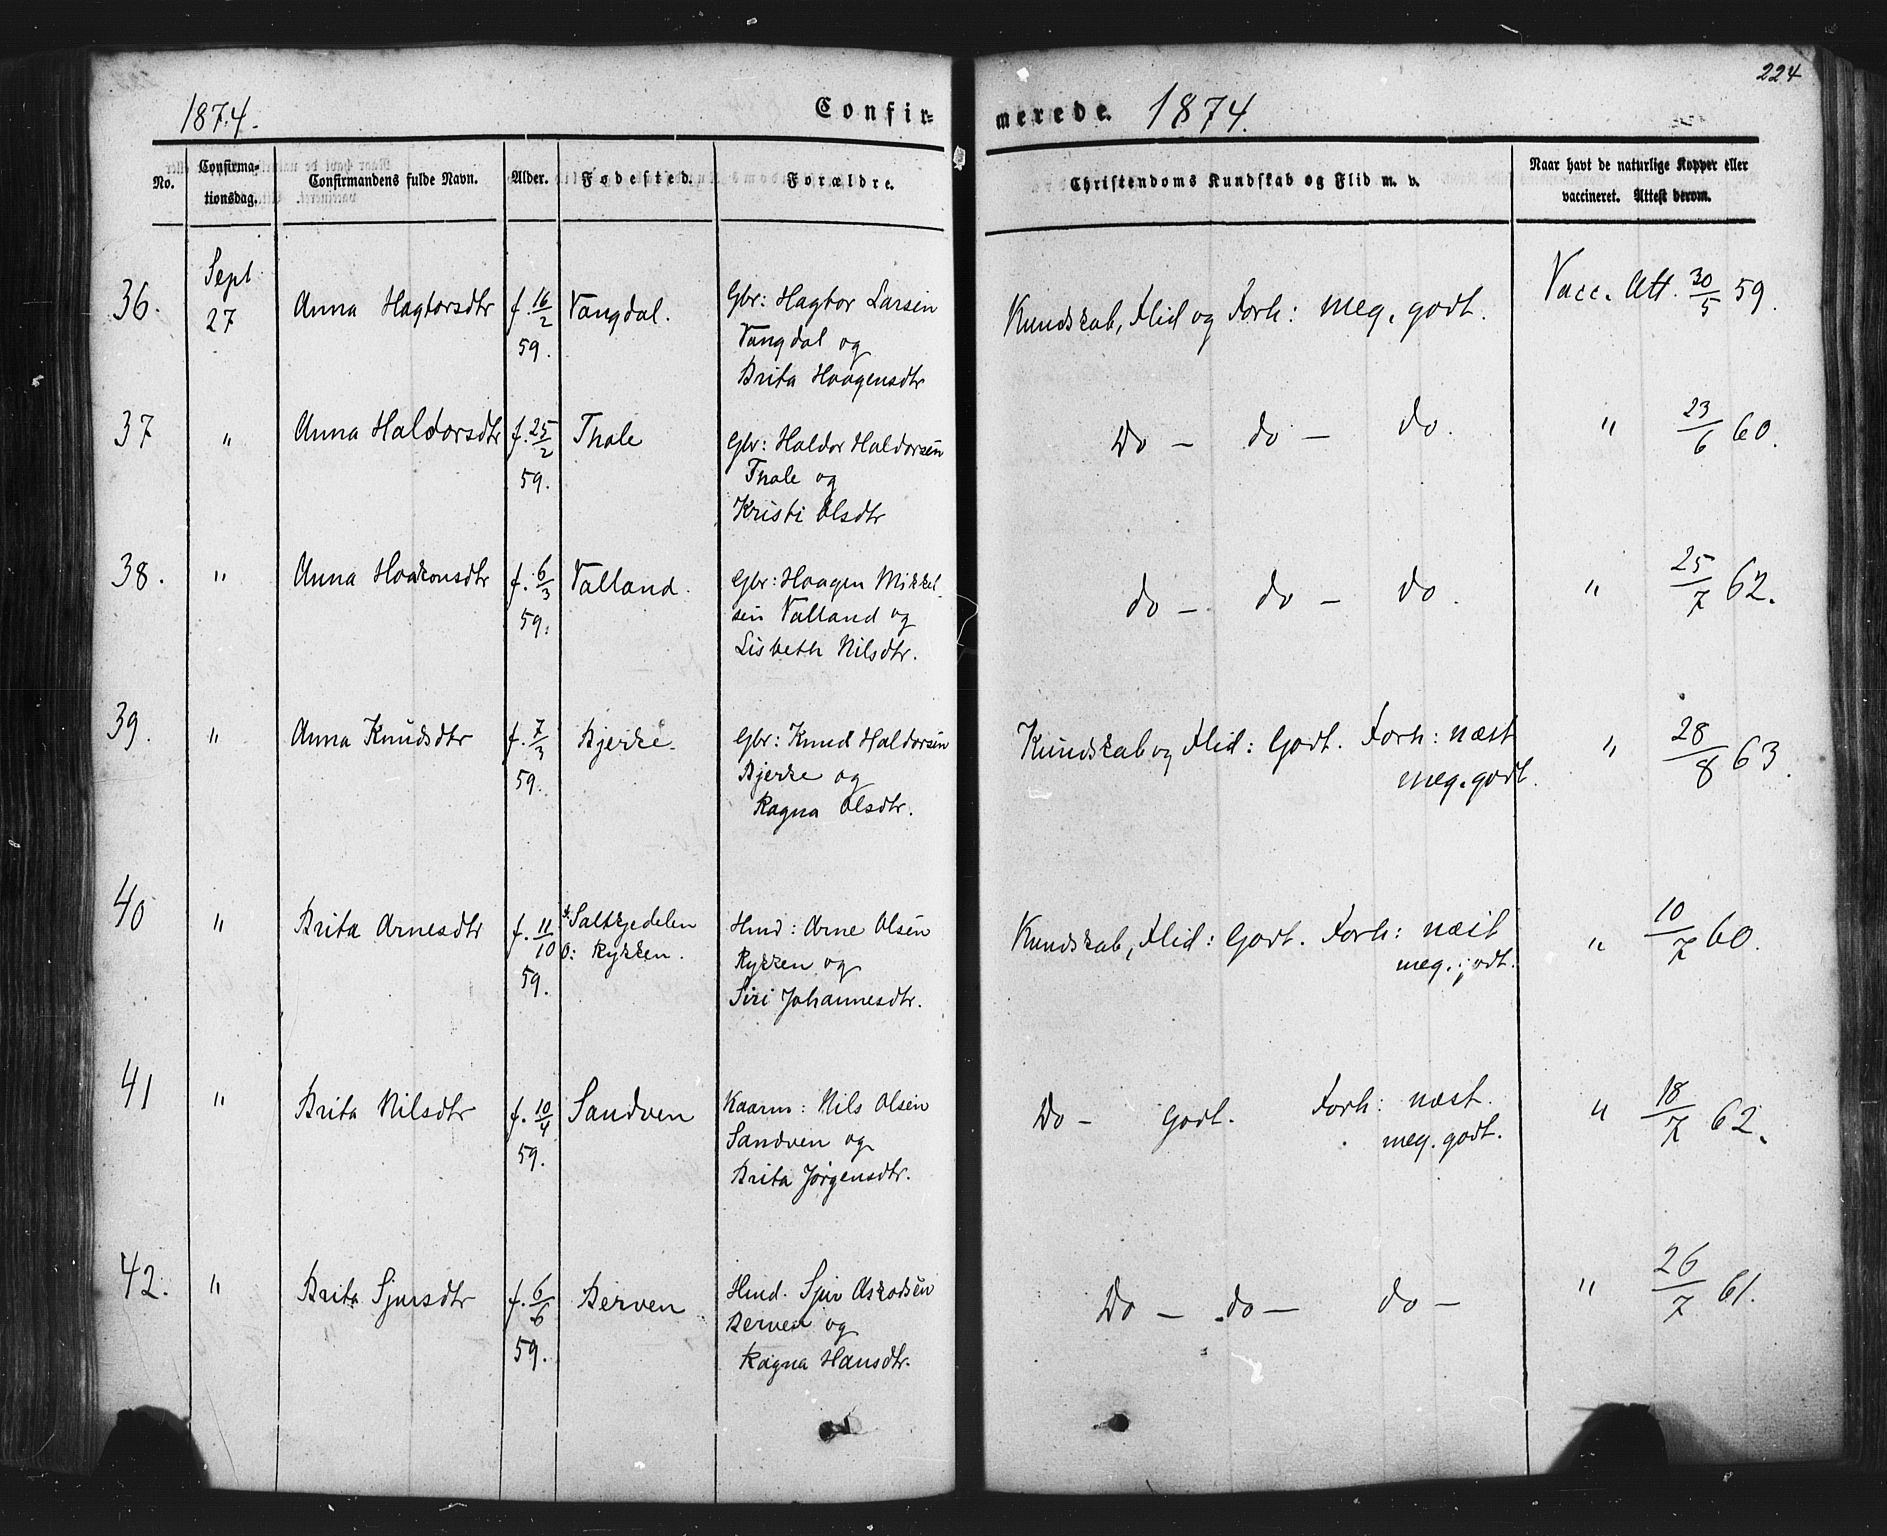 224
1874.
Confir=
merede. 1874.
No.
Confirma-
tionsdag.
Confirmandens fulde Navn.
Alder.
Fødested.
Forældre.
Christendoms Kundskab og Flid m. v.
Naar havt de naturlige Kopper eller
vaccineret. Attest derom.
36. Sept 27 Anna Hagtorsdtr f. 16/2 59. Vangdal. Gbr: Hagtor Larsen
Vangdal og
Brita Haagensdtr
Kundskab, Flid og Forh: meg. godt. Vacc. Att. 30/5 59.
37 " Anna Haldorsdtr f. 25/2 59. Thole Gbr: Haldor Haldorsen
Thole og
Kristi Olsdtr
Do - do - do. " 23/6 60.
38. " Anna Haakonsdtr f. 6/3 59. Valland. Gbr: Haagen Mikkel-
sen Valland og
Lisbeth Nilsdtr.
do - do - do. " 25/7 62.
39. " Anna Knudsdtr f. 7/3 59. Bjerke. Gbr: Knud Haldorsen
Bjerke og
Ragna Olsdtr.
Kundskab og Flid: Godt. Forh: næst
meg. godt. " 28/8 63.
40 " Brita Arnesdtr f. 11/10 59. Saltkjedelen
O: Rykken. Hmd: Arne Olsen
Rykken og
Siri Johannesdtr.
Kundskab, Flid: Godt. Forh: næst
meg. godt. " 10/7 60.
41 " Brita Nilsdtr f. 10/4 59. Sandven Kaarm: Nils Olsen
Sandven og
Brita Jørgensdtr.
Do - Godt. Forh: næst.
meg. godt. " 18/7 62.
42. " Brita Sjursdtr f. 6/6 59. Berven Hmd. Sjur Askodsen
Berven og
Ragna Hansdtr.
Do - do - do - " 26/7 61.